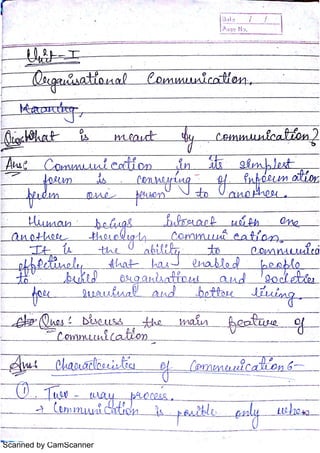 Date / /
Page No.
Unit - I
Organisational Communication.
Meaning,
Ques: What is meant by communication?
Ans: Communication in its simplest
form is conveying of information
from one person to another.
Human beings interact with one
another through communication.
It is the ability to communica
effectively that has enabled people
to build organisations and societies
for survival and better living.
Ques: Discuss the main feature of
Communication
Ans: Characteristics of Communication :-
① Two - way process.
→ Communication is possible only when
Scanned by CamScanner